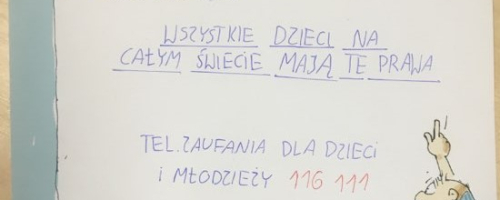 WSZYSTKIE DZIECI NA
CAŁYM ŚWIECIE MAJĄ TE PRAWA
TEL. ZAUFANIA DLA DZIECI
i MŁODZIEŻY 116 111